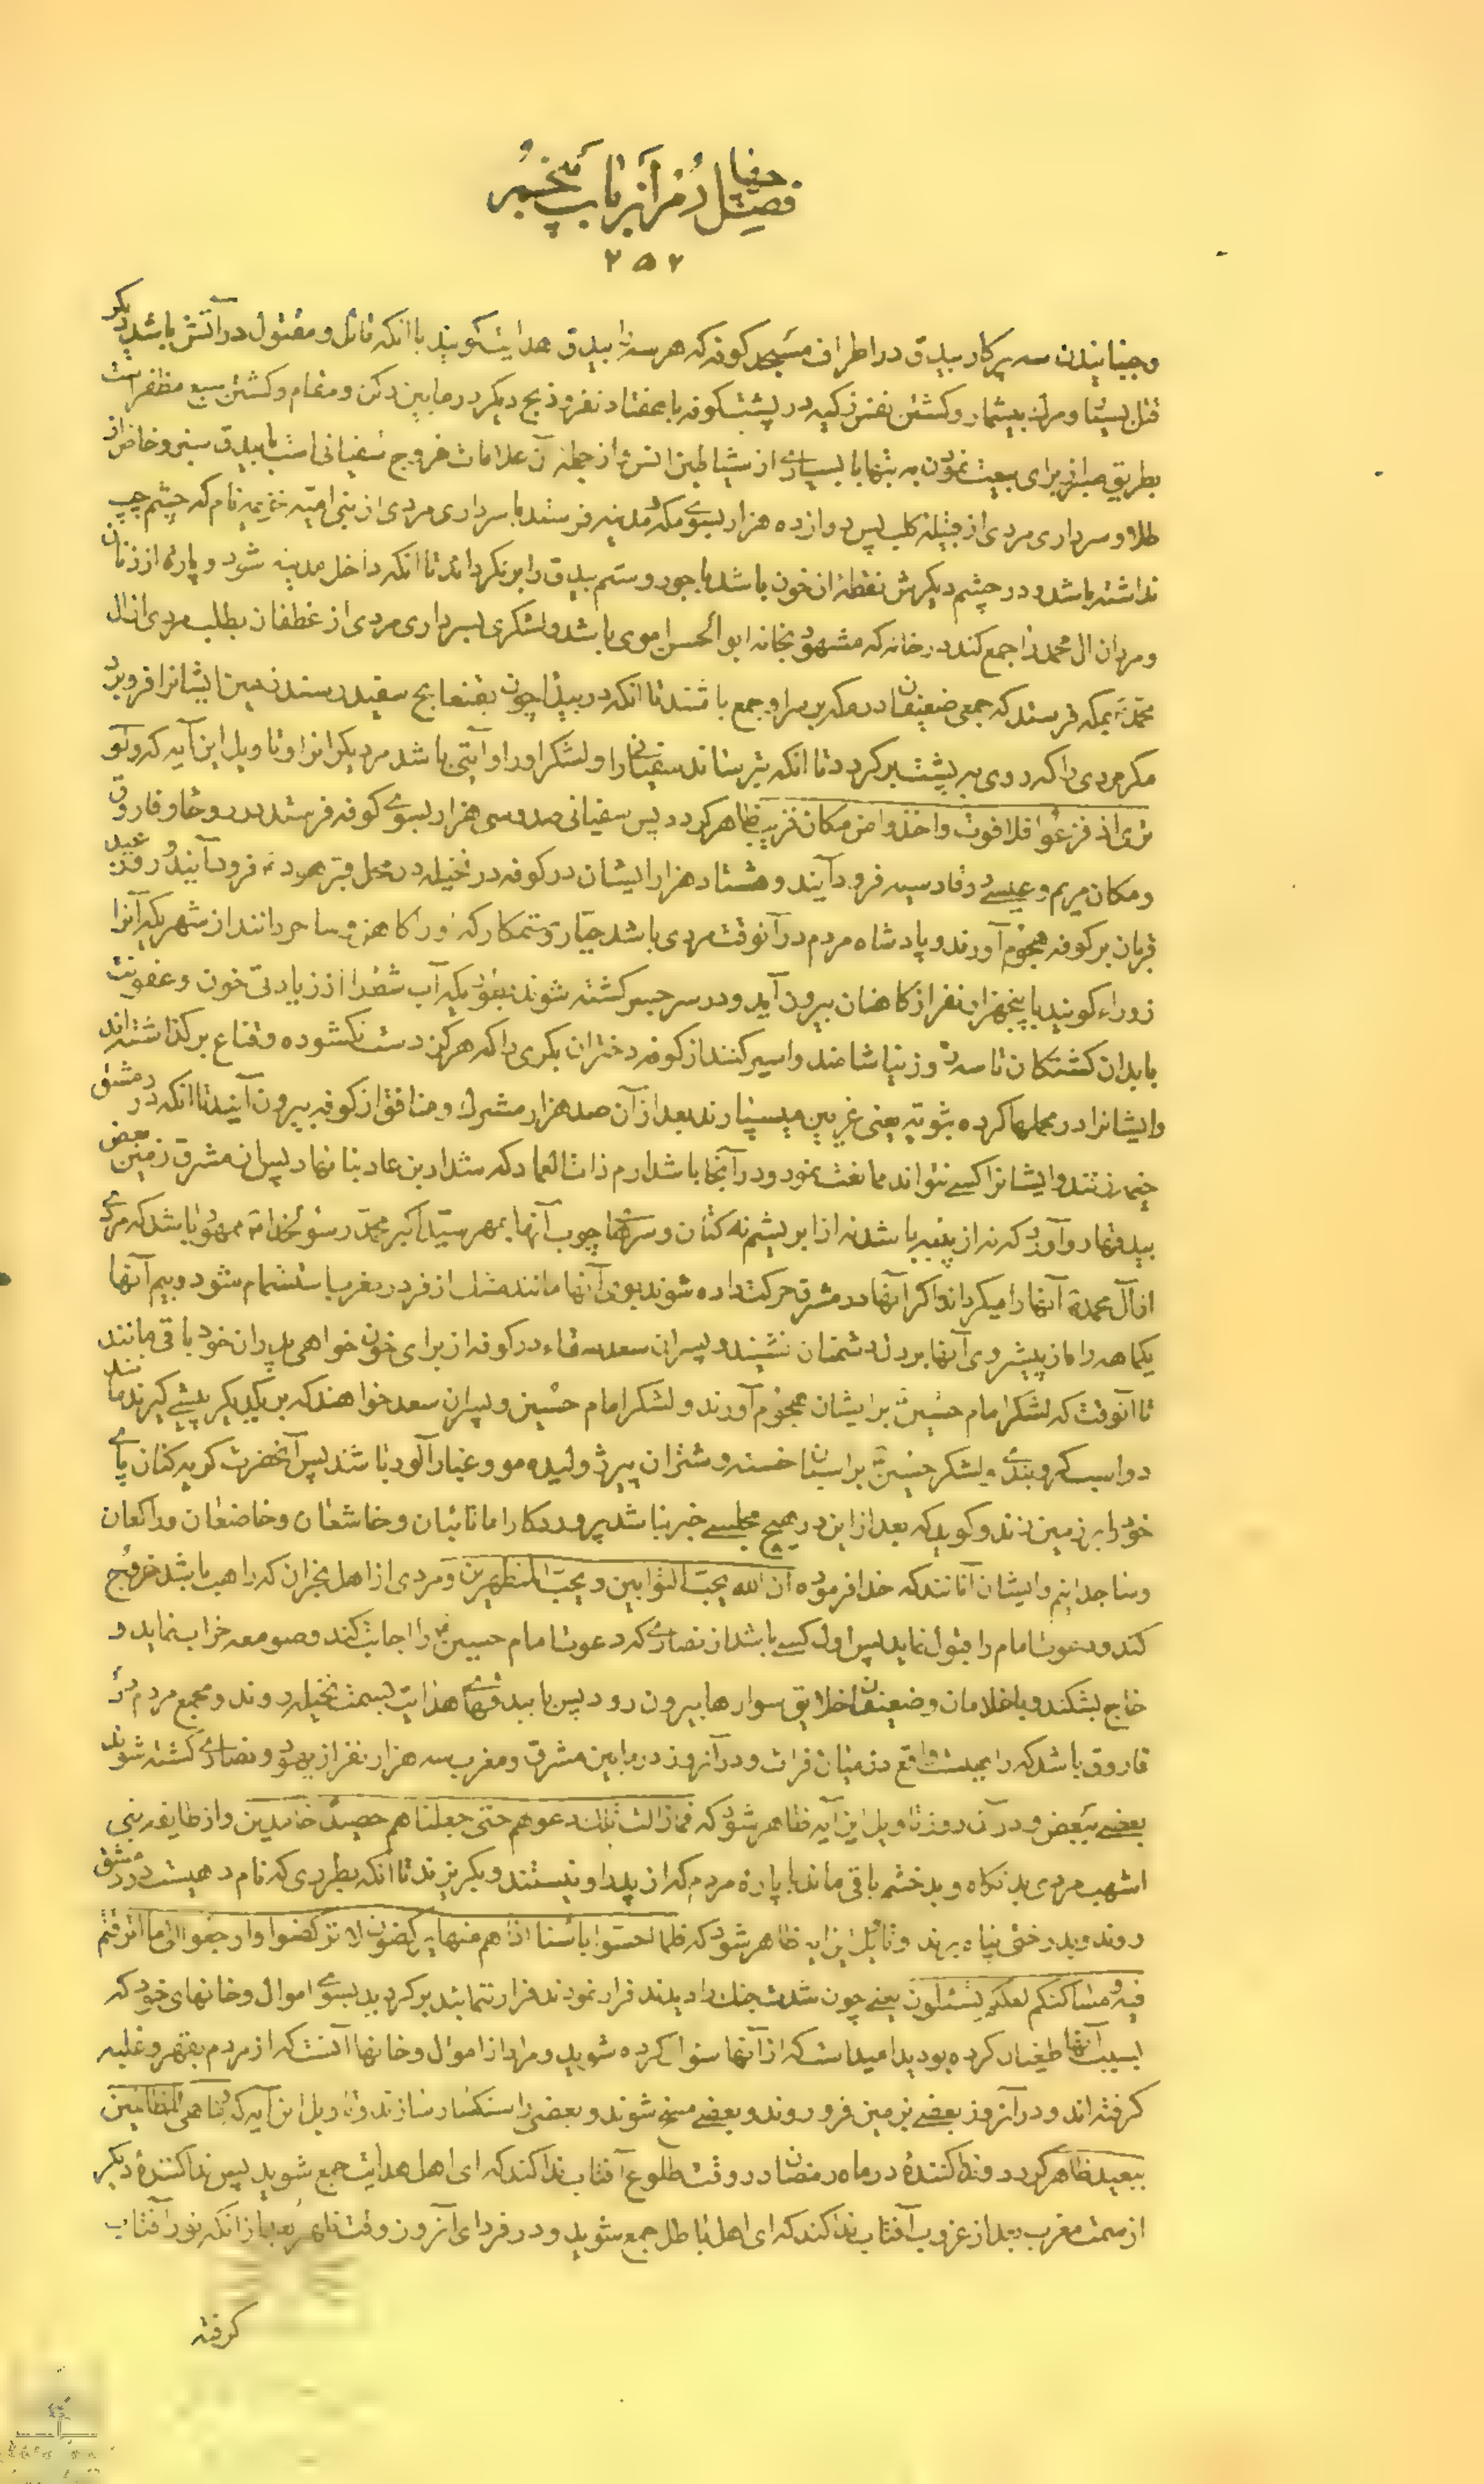 فصل دُویم از باب پنجم
۲۵۲
و جنبانیدن سه پرکار بیدق در اطراف مسجد کوفه که هر سه را بیدق هدایت گویند با انکه قاتل و مقتول در آتش باشد دیگر
قتل بسیار و مرك بیشمار و کشتن نفس زکیه در پشت کوفه با هفتاد نفر و ذبح دیکر در مابین رکن و مقام و کشتن سبع مظفر است
بطریق صبر از برای بیعت نمودن به بتها با بسیاری از شیاطین انس و از جمله آن علامات خروج سفیانی است با بیدق سبز و خاض از
طلا و سرداری مردی از قبیله کلب پس دوازده هزار بسوی مکه و مدینه فرستد با سرداری مردی از بنی امیه خزیمه نام که چشم چپ
نداشته باشد و در چشم دیکرش نقطه از خون باشد با جور و ستم بیدق را برنکرداند تا انکه داخل مدینه شود و پاره از زنان
و مردان ال محمد را جمع کند در خانه که مشهود بخانه ابو الحسن اموی باشد و لشکری بسرداری مردی از غطفان بطلب مردی از ال
محمد بمکه فرستد که جمعی ضعیفان در مکه بر سر او جمع باشند تا انکه در بیدا چون بقنعا بج سفید رسند زمین ایشانرا فرو برد
مکر مردی را که روی به پشت بر کردد تا انکه بترساند سفیانی را و لشکر او را و آیتی باشد مر دیکرانرا و تاویل این آیه که ولو
تری اذ فزعوا فلا فوت واخذوا من مکان قریب ظاهر کردد پس سفیانی صد و سی هزار بسوی کوفه فرستد در روحا و فاروق
و مکان مریم و عیسی در قادسیه فرود آیند و هشتاد هزار ایشان در کوفه در نخیله در محل قبر هود فرود آیند و روز عید
قربان بر کوفه هجوم آورند و پادشاه مردم در آنوقت مردی باشد جبار و ستمکار که او را کاهن و ساحر دانند از شهریکه آنرا
زوراء کویند با پنجهزار نفر از کاهنان بیرون آید و در سر جسر کشته شوند بنوعیکه آب شط را از زیادتی خون و عفونت
بابدان کشتکان تا سه روز نیاشامند و اسیر کنند از کوفه دختران بکری را که هرکز دست نکشوده و قناع بر نکذاشته اند
و ایشانرا در محملها کرده بثویه یعنی غریین میسپارند بعد از آن صد هزار مشرك و منافق از کوفه بیرون آیند تا انکه در دمشق
خیمه زنند و ایشانرا کسی نتواند ممانعت نمود و در آنجا باشد ارم ذات العماد که شداد بن عاد بنا نهاد پس از مشرق زمین بعض
بیدقها رو آورد که نه از پنبه باشد نه از ابریشم نه کتان و سرهای چوب آنها بمهر سید اکبر محمد رسول خدا ممهور باشد که مردی
از آل محمد آنها را میکرداند اکر آنها در مشرق حرکت داده شوند بوی آنها مانند مشك ازفر در مغرب استشمام شود و بیم آنها
یکماهه راه از پیشروی آنها بر دل دشمنان نشیند و پسران سعد سقاء در کوفه از برای خون خواهی پدران خود باقی مانند
تا آنوقت که لشکر امام حسین بر ایشان هجوم آورند و لشکر امام حسین و پسران سعد خواهند که بر یکدیکر پیشی کیرند مانند
دو اسب کرو بندی و لشکر حسین بر اسبان خسته و شتران پیر ژولیده مو و غبار آلود باشند پس آنحضرت کریه کنان پای
خود را بر زمین زند و کوید که بعد از این در هیچ مجلسی خیر نباشد پروردکارا ما تائبان و خاشعان و خاضعان و راکعان
و ساجدانیم و ایشان آنانند که خدا فرموده ان الله یحب التوابین ویحب المتطهرین و مردی از اهل نجران که راهب باشد خروج
کند و دعوت امام را قبول نماید پس اول کسی باشد از نصاری که دعوت امام حسین را اجابت کند و صومعه خراب نماید و
خاج بشکند و با غلامان و ضعیفان خلایق سوارها بیرون رود پس با بیدقهای هدایت بسمت نخیله روند و مجمع مردم در
فاروق باشد که راهیست واقع در میان فرات و در آنروز در مابین مشرق و مغرب سه هزار نفر از یهود و نصاری کشته شوند
بعضی ببعض و در آن روز تاویل این آیه ظاهر شود که فما زالت تلك دعوهم حتی جعلناهم حصیدا خامدین و از طایفه بنی
اشهب مردی بد نکاه و بد خشم باقی ماند با پاره مردم که از پدر او نیستند و بکریزند تا آنکه بطردی که نام دهیست در دمشق
روند و بدرختی پناه برند و تاویل این آیه ظاهر شود که فلما احسوا باسنا اذا هم منها یرکضون لا ترکضوا وارجعوا الی ما اترفتم
فیه ومساکنکم لعلکم تسئلون یعنی چون شدت جنك را دیدند فرار نمودند فرار ننمائید بر کردید بسوی اموال و خانهای خود که
بسبب آنها طغیان کرده بودید امید است که از آنها سؤال کرده شوید و مراد از اموال و خانها آنست که از مردم بقهر و غلبه
کرفته اند و در آنروز بعضی بزمین فرو روند و بعضی مسخ شوند و بعضی را سنکسار سازند و تاویل این آیه که وما هی من الظالمین
ببعید ظاهر کردد و ندا کنندۀ در ماه رمضان در وقت طلوع آفتاب ندا کند که ای اهل هدایت جمع شوید پس ندا کنندۀ دیکر
از سمت مغرب بعد از غروب آفتاب ندا کند که ای اهل باطل جمع شوید و در فردای آنروز وقت ظهر بعد از انکه نور آفتاب
کرفته